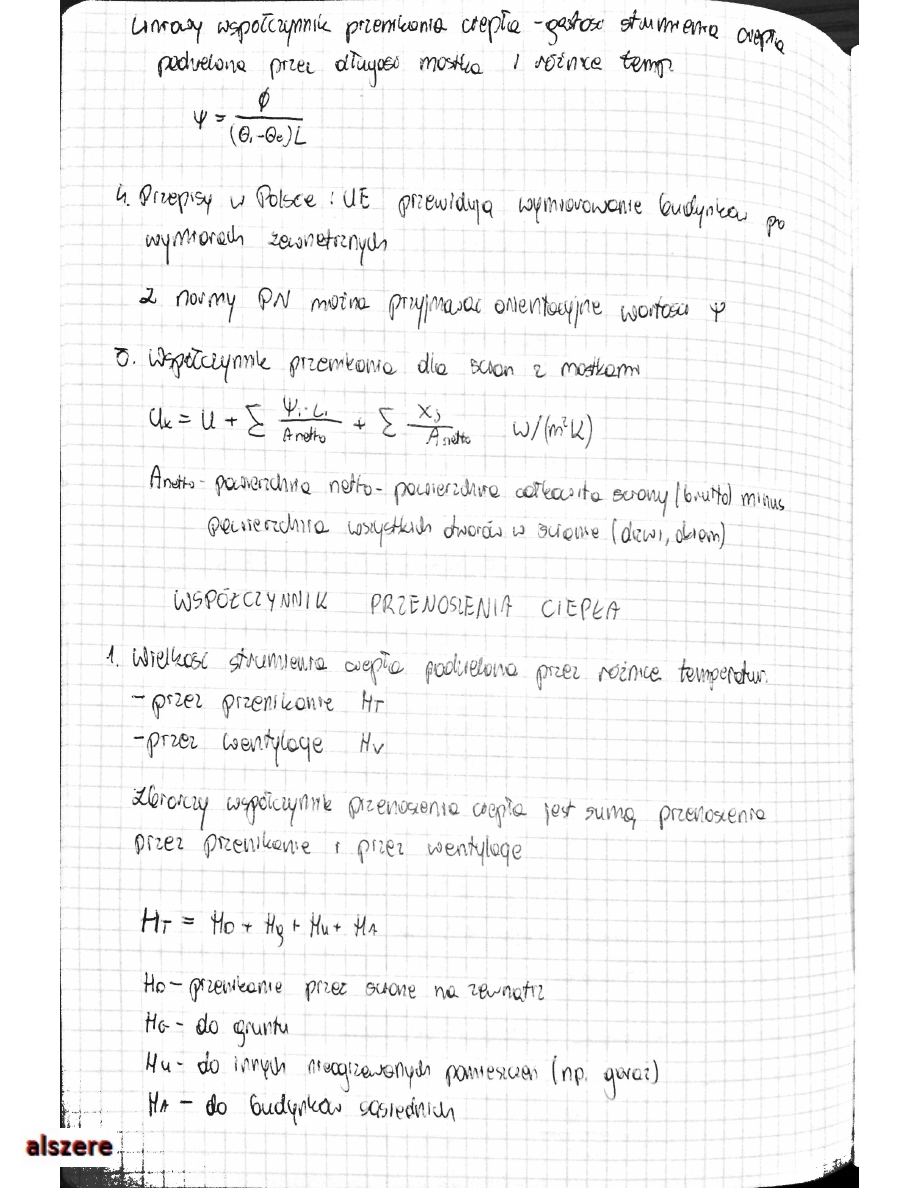 Liniowy współczynnik przenikania ciepła - gęstość strumienia ciepła
podzielona przez długość mostka i różnicę temp.
ψ = ϕ / ((θi - θe) L)
4. Przepisy w Polsce i UE przewidują wymiarowanie budynków po
wymiarach zewnętrznych
Z normy PN można przyjmować orientacyjne wartości ψ
5. Współczynnik przenikania dla ścian z mostkami
Uk = U + Σ Ψi·Li / Anetto + Σ Xj / Anetto W/(m²K)
Anetto - powierzchnia netto - powierzchnia całkowita ściany (brutto) minus
powierzchnia wszystkich otworów w ścianie (drzwi, okien)
WSPÓŁCZYNNIK PRZENOSZENIA CIEPŁA
1. Wielkość strumienia ciepła podzielona przez różnicę temperatur.
- przez przenikanie HT
- przez wentylację HV
Zbiorczy współczynnik przenoszenia ciepła jest sumą przenoszenia
przez przenikanie i przez wentylację
HT = HD + Hg + Hu + HA
HD - przenikanie przez ścianę na zewnątrz
HG - do gruntu
Hu - do innych nieogrzewanych pomieszczeń (np. garaż)
HA - do budynków sąsiednich
alszere